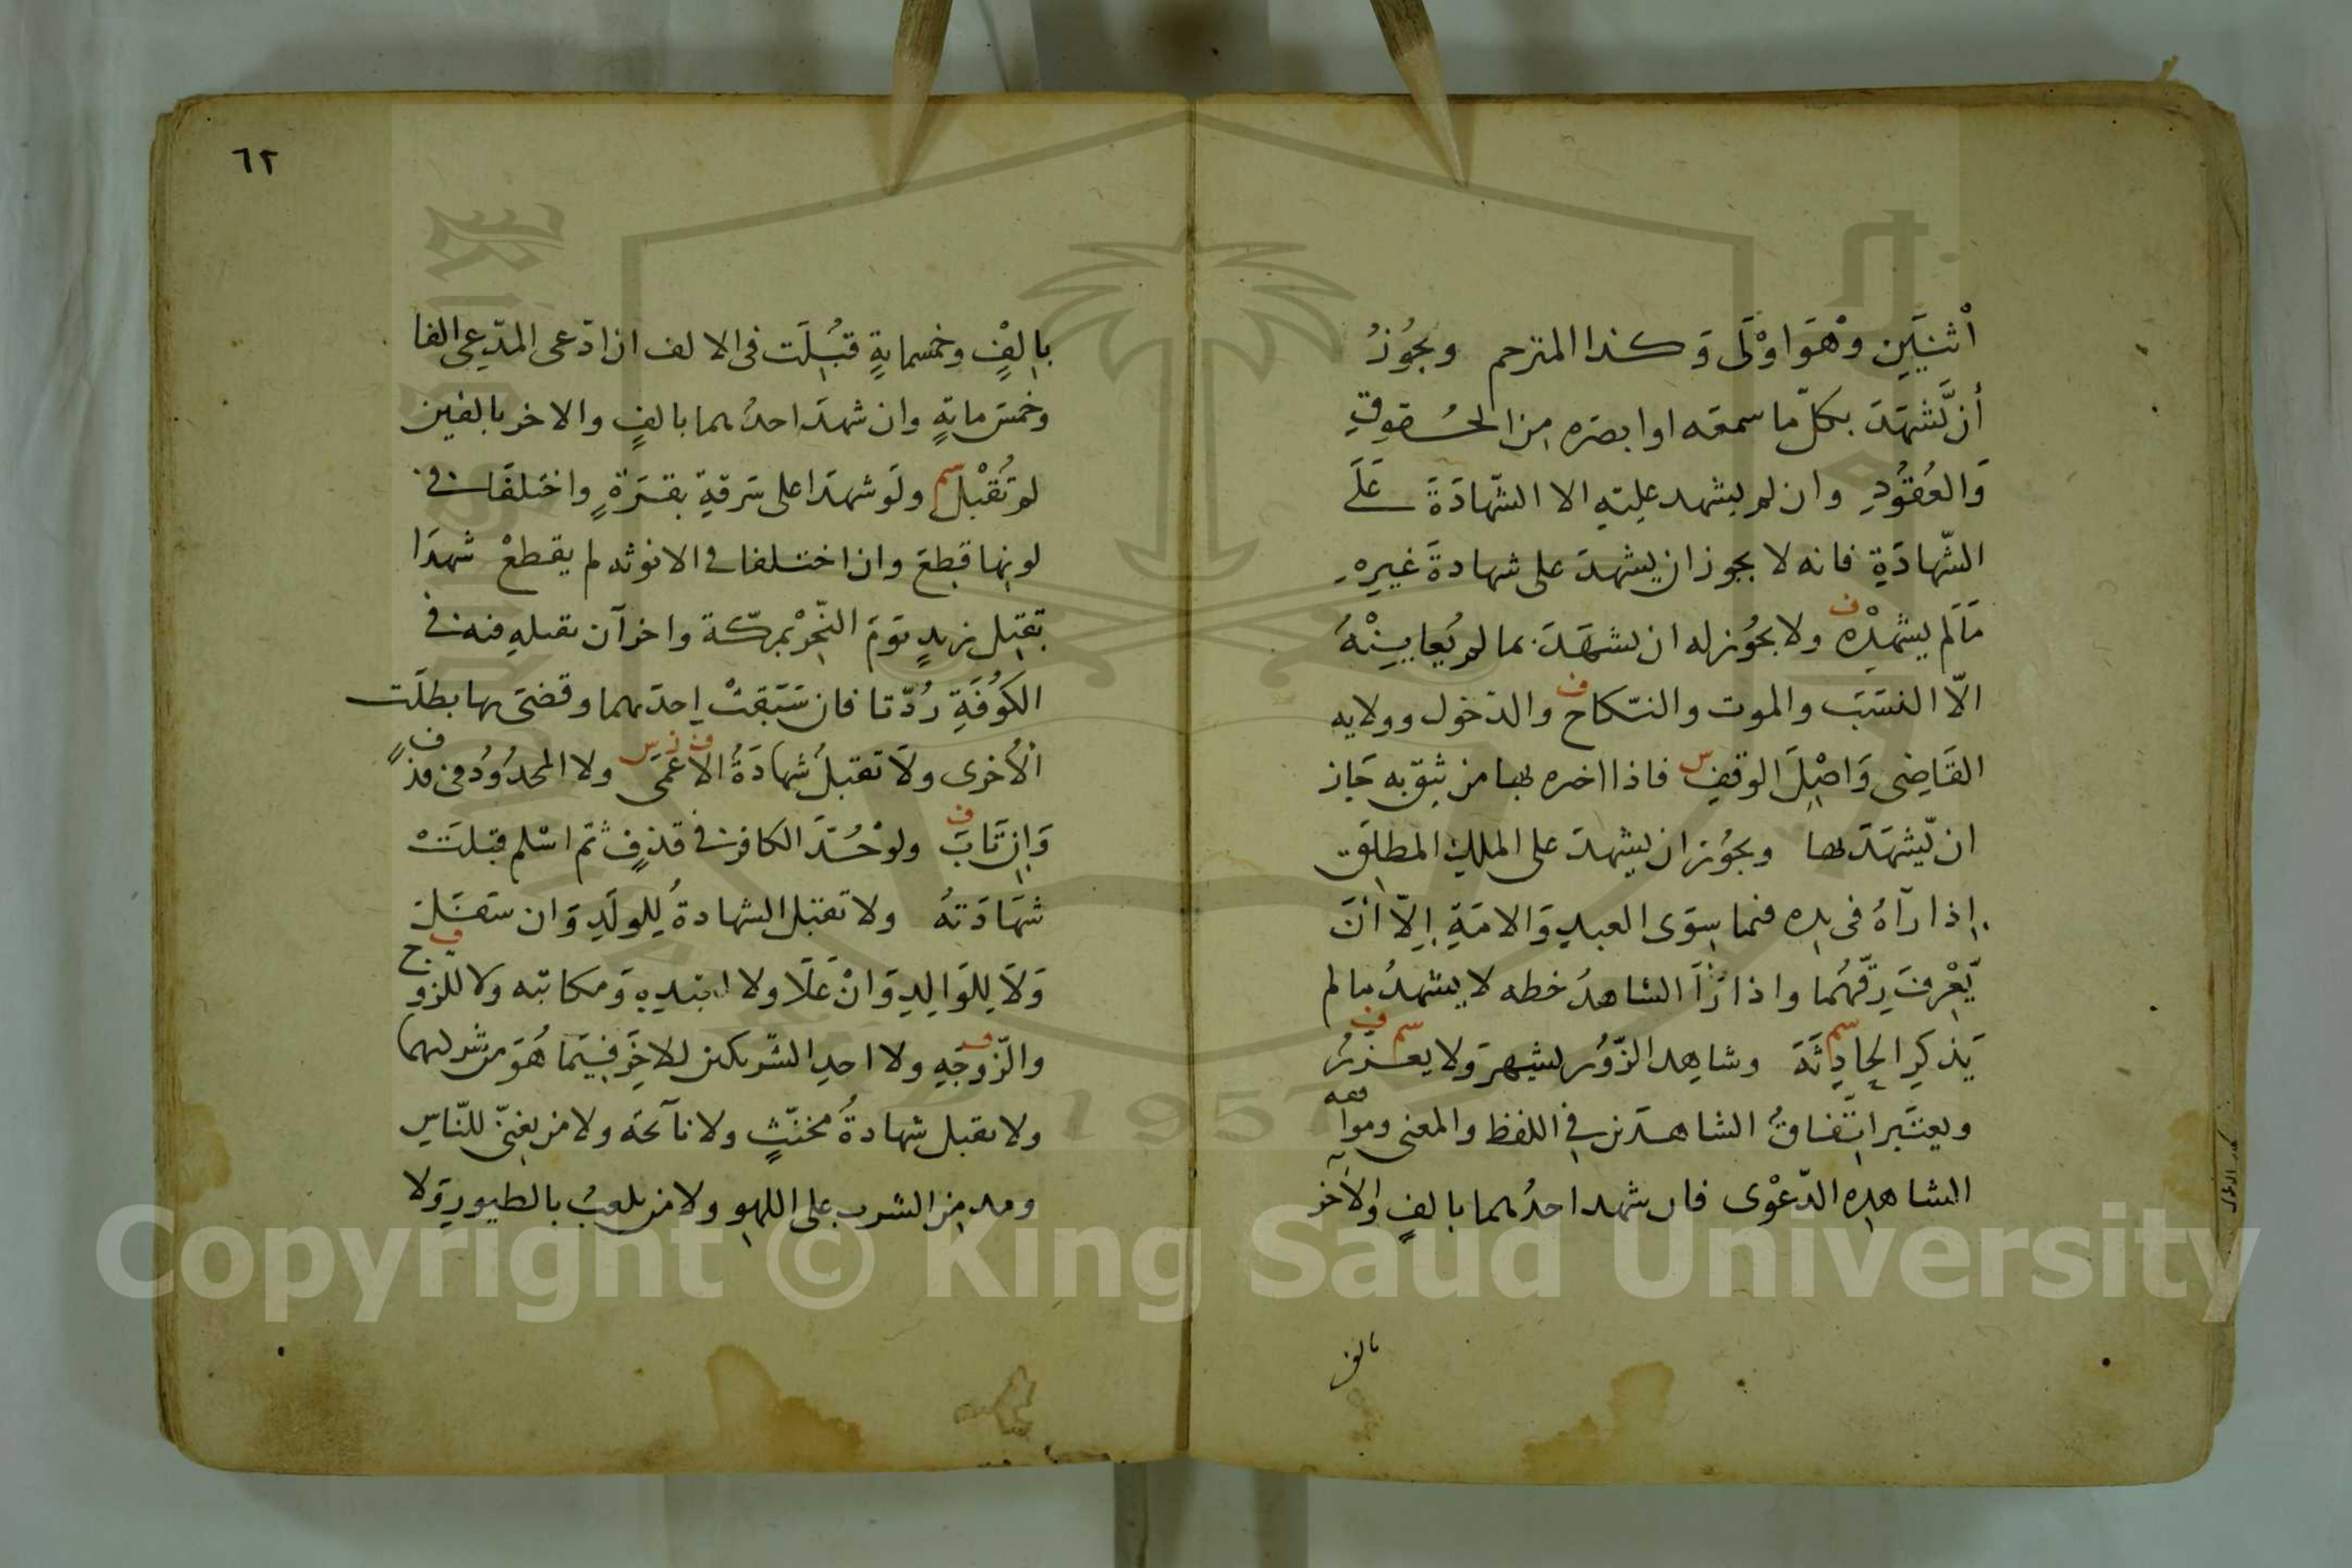 أثنَيَيْنِ وَهْوَ اوْلَى وَكذا المترجم ويجُوزُ
أن يَّشهَدَ بكلّ ما سمعَه او ابصَره من الحُقوقِ
وَالعُقُودِ وان لم يشهد عليَه الا الشّهادَةَ عَلَى
الشّهادَةِ فانه لا يجوز ان يشهدَ على شهادةَ غيرِهِ
مَالَم يشْهِدْه ف ولا يجُوز له ان يشهَدَ بما لم يُعاينِْهُ
الّا النسَبَ والموت والنّكاح ف والدّخول وولايه
القَاضِى وَاصْلَ الوقفِ س فاذا اخبره بها من يثق به جَاز
ان يّشهَدَ بها ويجُوز ان يشهدَ على الملكِ المطلَق
إذا رآهُ فى يده فيما سِوَى العبدِ وَالامَةِ إلّا أنَ
يَّعْرِفَ رِقَّهُما واذا رَأَ الشاهدُ خطه لا يشهدُ مالم
يَذكرِ الحادِثَةَ سم وشاهِد الزّوُر يشهر وَلا يعزرُ سم ف
ويعتَبر اتّفاقُ الشاهدَين فِى اللفظ والمعنى وموافقه
الشاهِدِه الدّعْوى فان شهد احدُهما بالفٍ والآخر
بالف
٦٢
بالفٍ وخمسمايةٍ قُبِلَت فى الالف ان ادّعى المدّعِى الفا
وخمسَ مايةٍ وان شهدَ احدُهما بالفٍ والاخر بالفين
لم تُقْبلْ سم ولَو شهدَا على سَرقةِ بقَرَةٍ واختلفَا فى
لونِها قطِعَ وان اختلفا فى الانوثه لم يقطعْ شهدَا
بقتِل زيدٍ يوَمَ النّحْرِ بمكّة واخرآن بقتلهِ فيه فى
الكوُفَةِ رُدّتا فان سَبَقتْ إحدَيهما وقضىَ بها بطلَت
ألأخرى ولَا تقبلُ شهادَةُ الاعْمَى ف ز س ولا المحدُودُ فى قذفٍ
وَإن تَابَ ف ولوْ حُدَّ الكافر فى قذفٍ ثمّ اسْلم قبلَتْ
شهَادَتهُ ولا تقبل الشهادةُ لِلولَدِ وَان سَفَلَ
وَلَا لِلوَالِدِ وَانْ عَلَا ولا لعَبْدِهِ وَمكاتبَه ولا للزوج ف
والزّوجَهِ ولا احدِ الشّريكين للاخَرِ فِيَما هُوَ من شركتهما
ولا تقبل شهادةُ مخنّثٍ ولا نآئحَه ولا من يغنّى للنّاسِ
ومدمِن الشرب على اللهوِ ولا من يلعبُ بالطيورِ وَلا
Copyright © King Saud University
1957